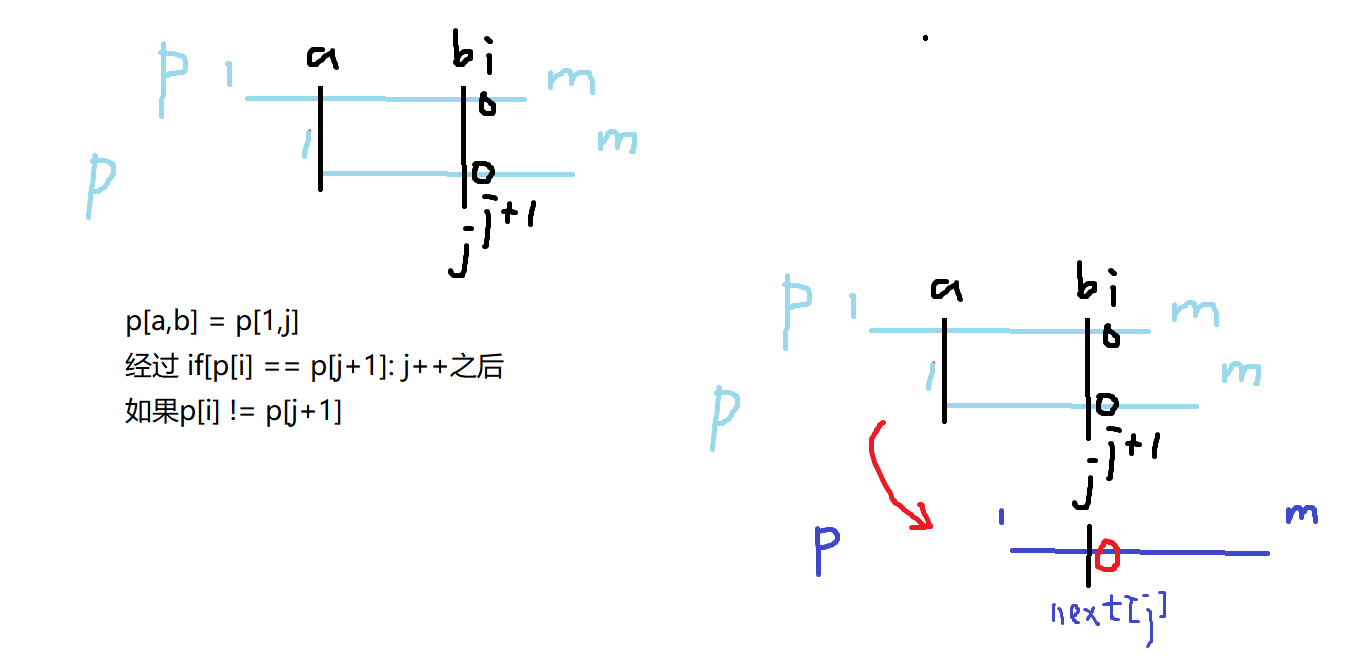 a b i
p 1 m
1 m
p
j j+1
p[a,b] = p[1,j]
经过 if[p[i] == p[j+1]: j++之后
如果p[i] != p[j+1]
a b i
p 1 m
1 m
p
j j+1
1 m
p
next[j]